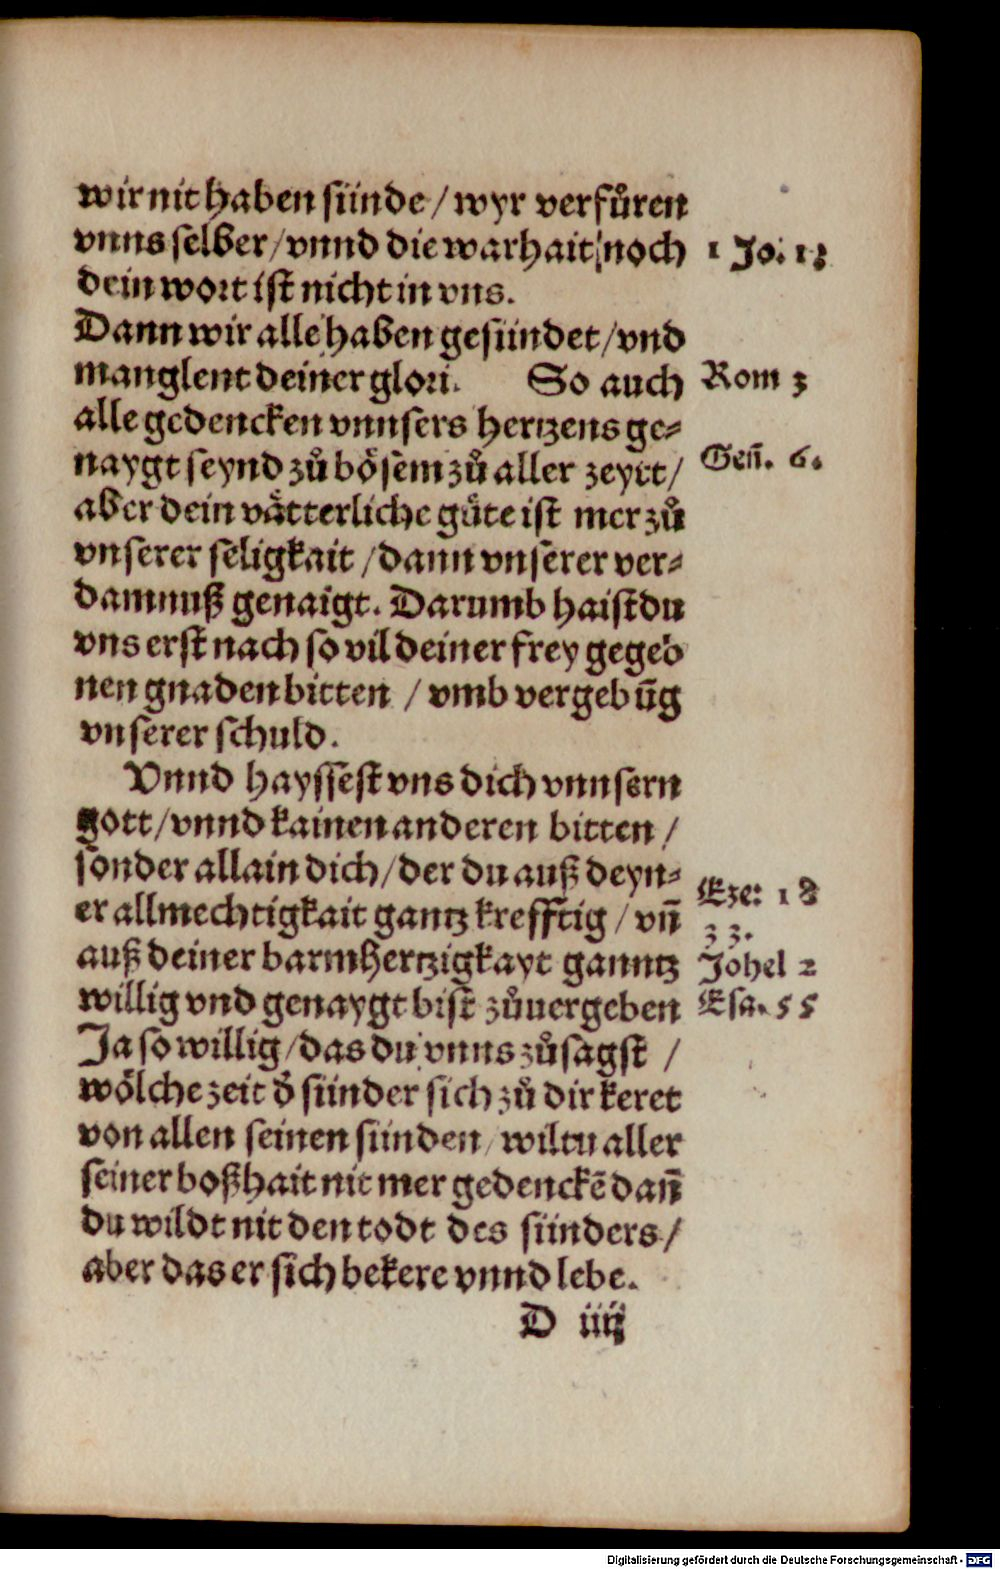 wir nit haben sünde / wyr verfůren
vnns selber / vnnd die warhait / noch
dein wort ist nicht in vns.
1 Jo. 1
Dann wir alle haben gesündet / vnd
manglent deiner glori. So auch
Rom 3
alle gedencken vnnsers hertzens ge-
naygt seynd zů bösem zů aller zeytt /
Geñ. 6.
aber dein vätterliche güte ist mer zů
vnserer seligkait / dann vnserer ver-
damnuß genaigt. Darumb haist du
vns erst nach so vil deiner frey gegeb
nen gnaden bitten / vmb vergebūg
vnserer schuld.
Vnnd hayssest vns dich vnnsern
gott / vnnd kainen anderen bitten /
sonder allain dich / der du auß deyn-
er allmechtigkait gantz krefftig / vñ
auß deiner barmhertzigkayt ganntz
willig vnd genaygt bist zůuergeben
Eze: 18
33.
Johel 2
Esa. 55
Ja so willig / das du vnns zůsagst /
wölche zeit d̕ sünder sich zů dir keret
von allen seinen sünden / wiltu aller
seiner boßhait nit mer gedenckē dañ
du wildt nit den todt des sünders /
aber das er sich bekere vnnd lebe.
D iiij
Digitalisierung gefördert durch die Deutsche Forschungsgemeinschaft - DFG